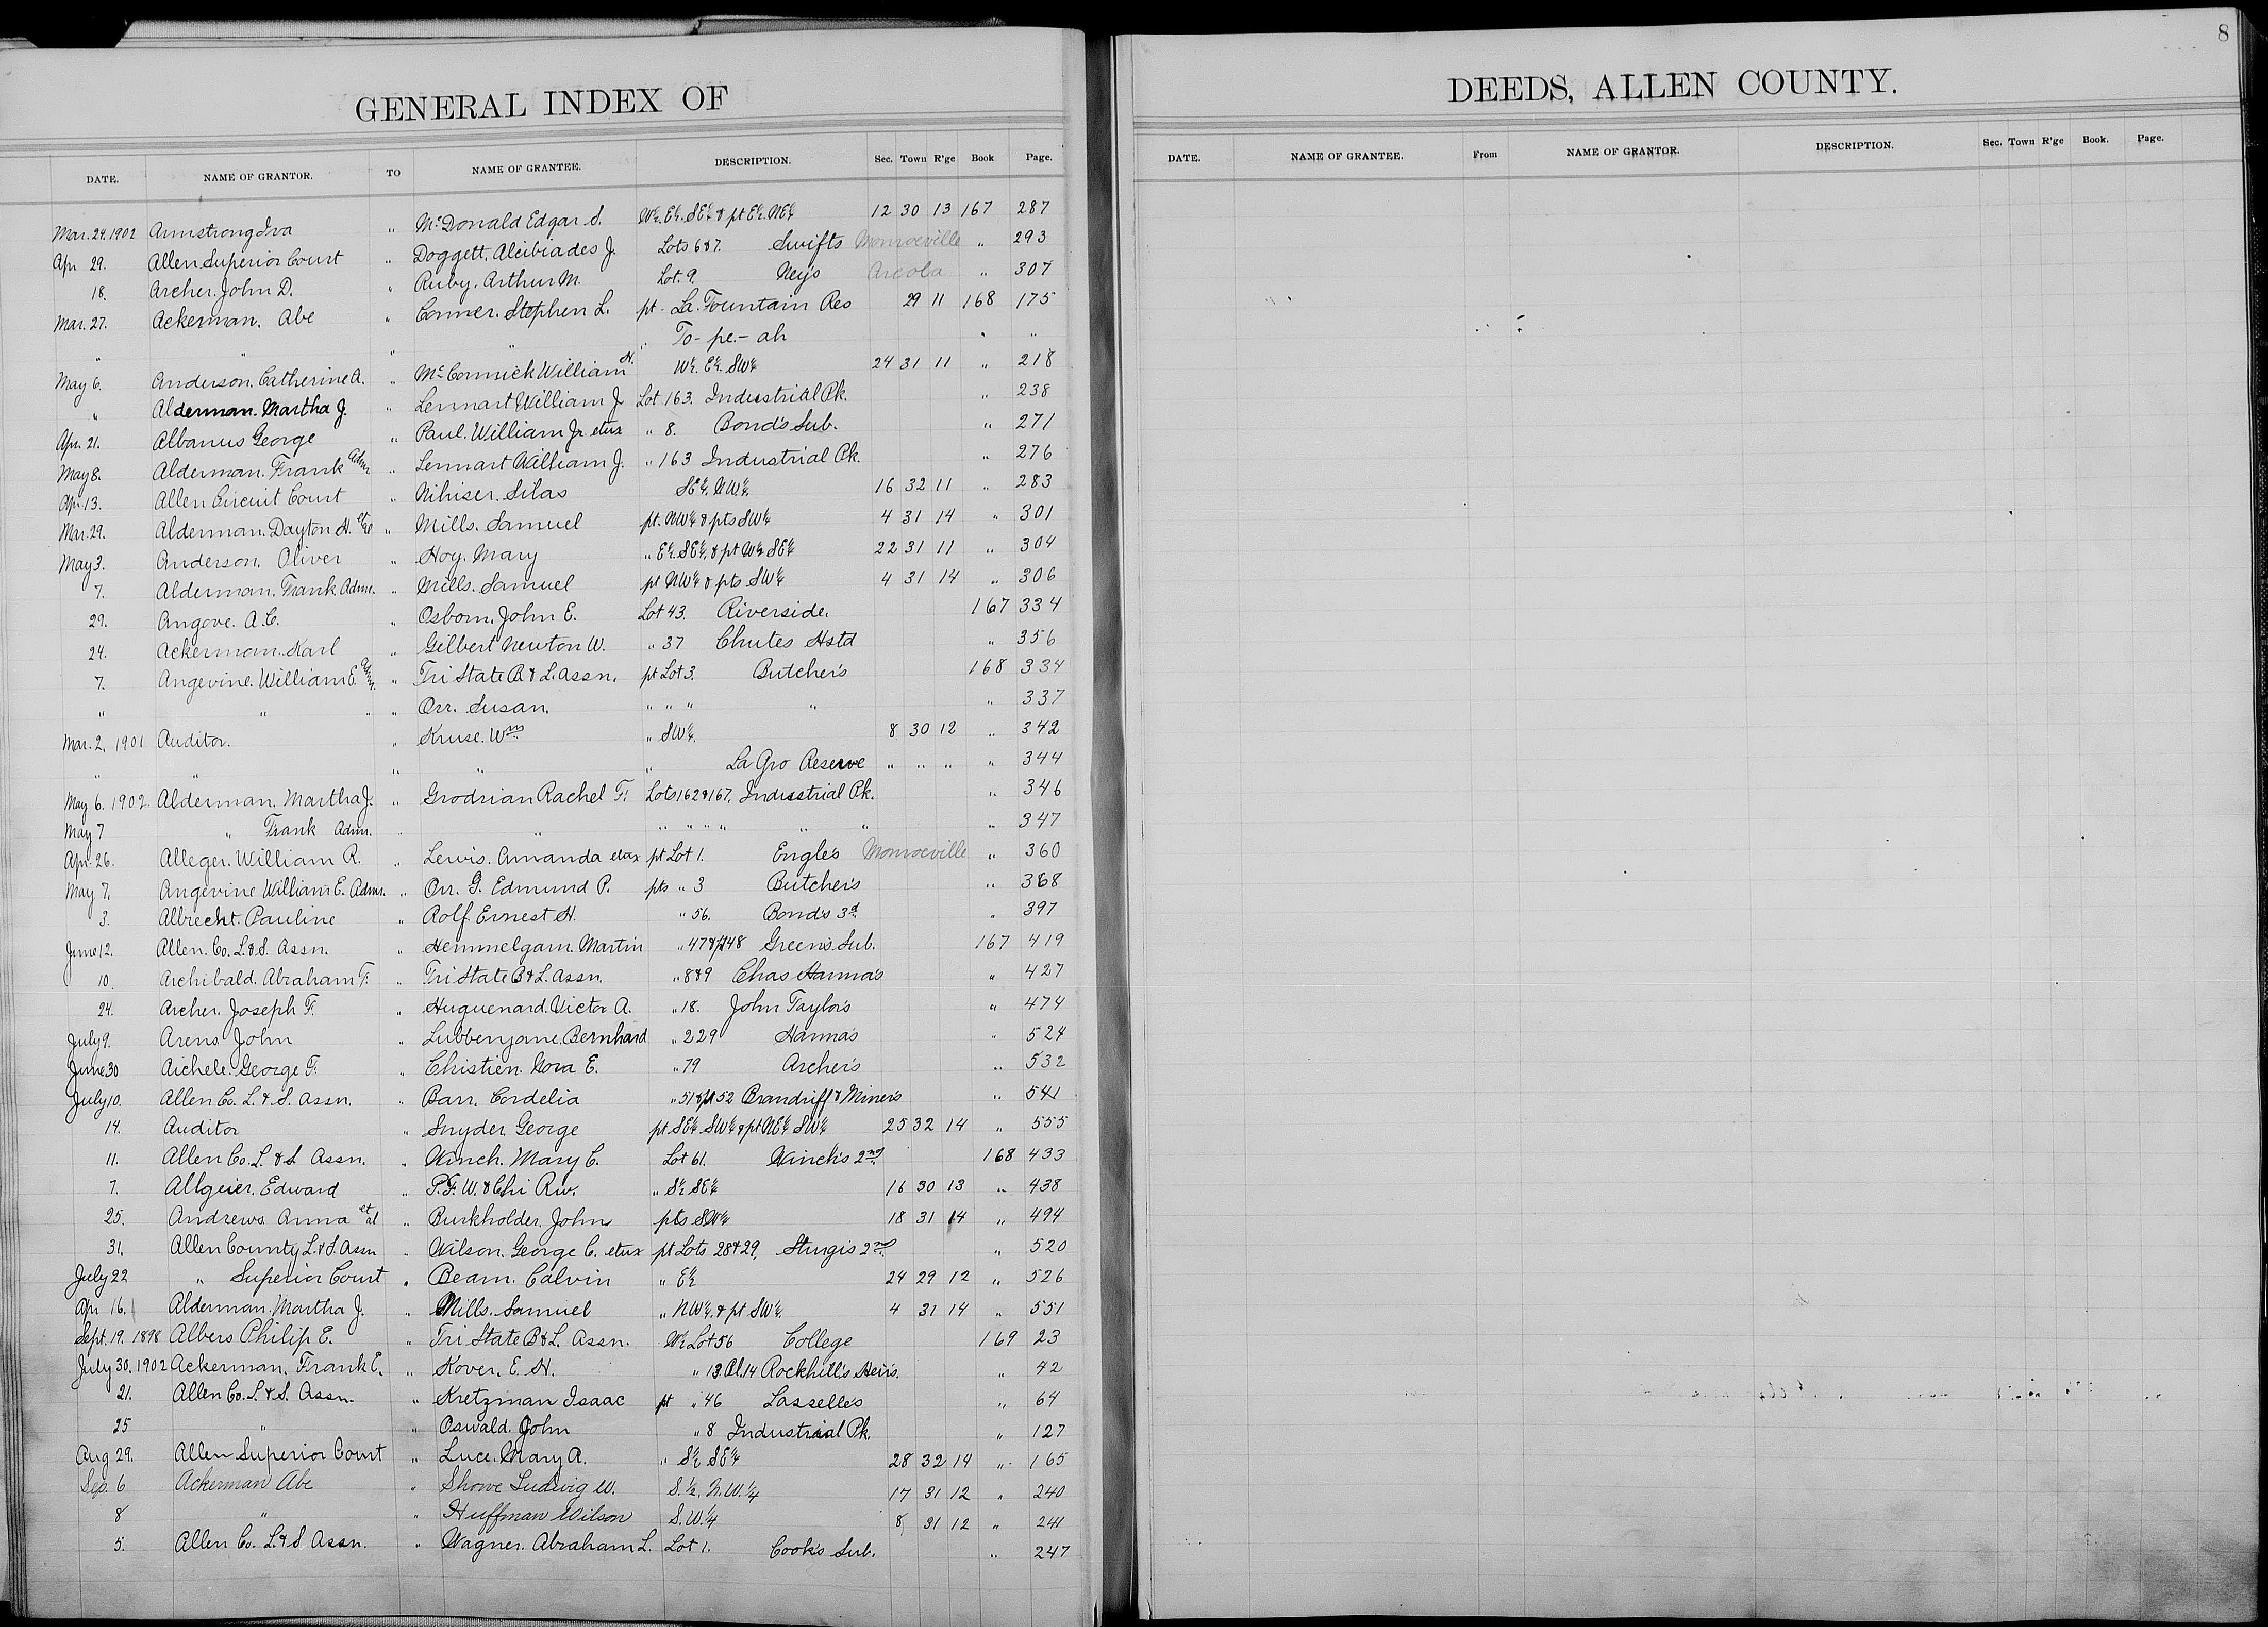 GENERAL INDEX OF
DATE. NAME OF GRANTOR. TO NAME OF GRANTEE. DESCRIPTION. Sec. Town R'ge Book Page.
Mar. 24. 1902 Armstrong Iva " McDonald Edgar S. W½. E½. SE¼ & pt E½. NE¼ 12 30 13 167 287
Apr 29. Allen Superior Court " Doggett, Alcibiades J. Lots 6&7. Swifts Monroeville " 293
18. Archer. John D. " Ruby. Arthur M. Lot. 9. Ney's Arcola " 307
Mar. 27. Ackerman. Abe " Conner. Stephen L. pt. La. Fountain Res 29 11 168 175
" " " " " To-pe-ah " "
May 6. Anderson. Catherine A. " McCormick William H. W½. E½. SW¼ 24 31 11 " 218
" Alderman. Martha J. " Lennart William J Lot 163. Industrial Pk. " 238
Apr. 21. Albanus George " Paul. William Jr. etux " 8. Bond's Sub. " 271
May 8. Alderman. Frank Adm. " Lennart William J. " 163 Industrial Pk. " 276
Apr. 13. Allen Circuit Court " Nihiser. Silas SE¼. NW¼. 16 32 11 " 283
Mar. 29. Alderman. Dayton H. et al " Mills. Samuel pt. NW¼ & pts SW¼ 4 31 14 " 301
May 3. Anderson. Oliver " Hoy. Mary " E½. SE¼. & pt W½ SE¼ 22 31 11 " 304
7. Alderman. Frank Admr. " Mills. Samuel pt NW¼ & pts SW¼ 4 31 14 " 306
29. Angove. A.C. " Osborn. John E. Lot 43. Riverside. 167 334
24. Ackermann. Karl " Gilbert Newton W. " 37 Chutes Hstd " 356
7. Angevine. William E. Admr. " Tri State B & L. Assn. pt Lot 3. Butcher's 168 334
" " " Orr. Susan. " " " " " 337
Mar. 2. 1901 Auditor. " Kruse. Wm " SW¼. 8 30 12 " 342
" " " " " La Gro Reserve " " " " 344
May 6. 1902. Alderman. Martha J. " Grodrian Rachel F. Lots 162 & 167. Industrial Pk. " 346
May 7 " Frank Admr. " " " " " " " " " 347
Apr. 26. Alleger. William R. " Lewis. Amanda etux pt Lot 1. Engle's Monroeville " 360
May 7. Angevine William E. Admr. " Orr. G. Edmund P. pts " 3 Butcher's " 368
3. Albrecht. Pauline " Rolf. Ernest H. " 56. Bond's 3d " 397
June 12. Allen. Co. L. & S. Assn. " Hemmelgarn. Martin " 47 & pt 48 Green's Sub. 167 419
10. Archibald. Abraham F. " Tri State B & L. Assn. " 8&9 Chas Hanna's " 427
24. Archer. Joseph F. " Huguenard. Victor A. " 18. John Taylor's " 474
July 9. Arens John " Lubbenjans. Bernhard " 229 Hanna's " 524
June 30 Aichele. George F. " Christien. Cora E. " 79 Archer's " 532
July 10. Allen Co. L. & S. Assn. " Barr. Cordelia " 51 & pt 52 Brandriff & Miner's " 541
14. Auditor " Snyder. George pt SE¼. SW¼ & pt NE¼ SW¼ 25 32 14 " 555
11. Allen Co. L. & S Assn. " Winch. Mary C. Lot 61. Winch's 2nd 168 433
7. Allgeier. Edward " P. F. W. & Chi Rw. " S½ SE¼ 16 30 13 " 438
25. Andrews Anna et al " Burkholder. John pts SW¼ 18 31 14 " 494
31. Allen County L. & S. Assn " Wilson. George C. etux pt Lots 28 & 29, Sturgis 2nd. " 520
July 22 " Superior Court " Beam. Calvin " E½ 24 29 12 " 526
Apr 16. Alderman. Martha J. " Mills. Samuel " NW¼. & pt SW¼. 4 31 14 " 551
Sept. 19. 1898 Albers Philip E. " Tri State B & L. Assn. W½ Lot 56 College 169 23
July 30, 1902 Ackerman. Frank E. " Kover. E. H. " 13 Bl. 14 Rockhill's Heirs. " 42
21. Allen Co. L. & S. Assn. " Kretzman Isaac pt " 46 Lasselle's " 64
25 " " Oswald. John " 8 Industrial Pk. " 127
Aug 29. Allen Superior Court " Luce. Mary A. " S½ SE¼ 28 32 14 " 165
Sep. 6 Ackerman Abe " Showe Ludwig W. S. ½. N.W. ¼ 17 31 12 " 240
8 " " Huffman Wilson S.W. ¼ 8 31 12 " 241
5. Allen Co. L. & S. Assn. " Wagner. Abraham L. Lot 1. Cook's Sub. " 247
8
DEEDS, ALLEN COUNTY.
DATE. NAME OF GRANTEE. From NAME OF GRANTOR. DESCRIPTION. Sec. Town R'ge Book. Page.